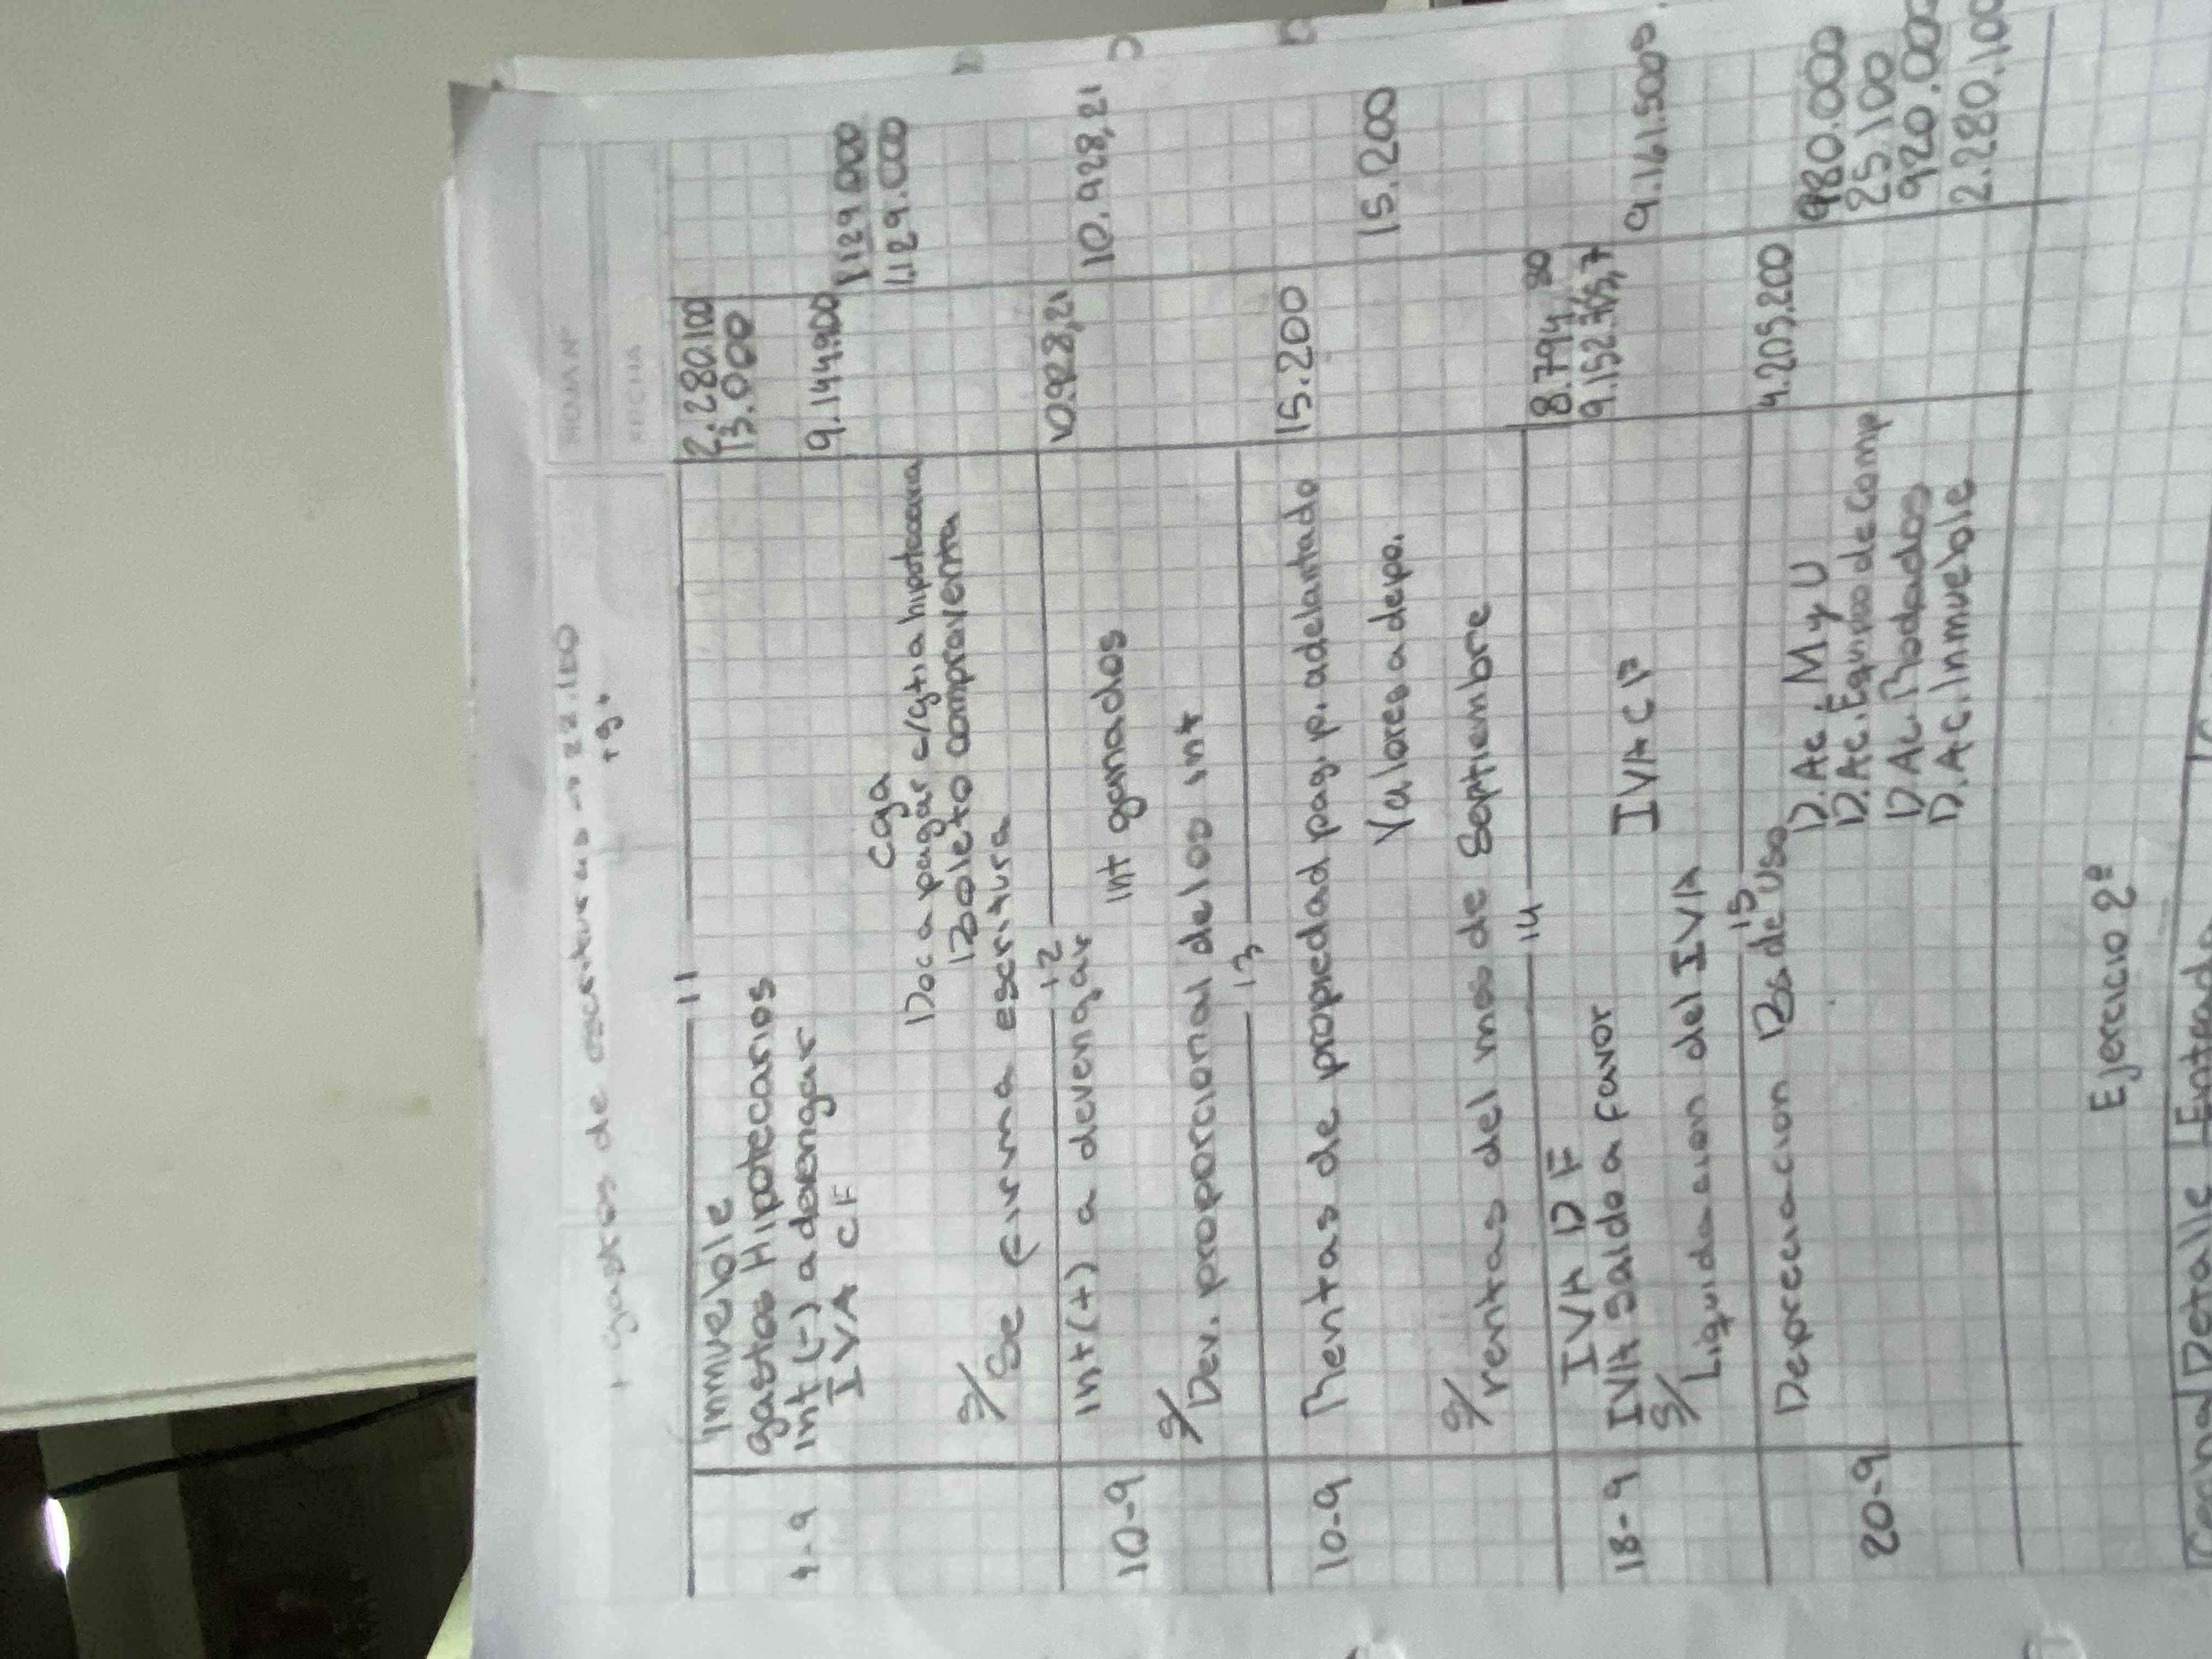 + gastos de escrituras → 22.100
+g.
11
Inmueble 2.280.100
gastos Hipotecarios 13.000
4-9 Int (-) a devengar
IVA CF 9.144.900
Caja 1.129.000
Doc a pagar c/gtia hipotecaria 1.129.000
Boleto compraventa
S/ Se firma escritura
12
10-9 Int (+) a devengar 10.928,21
Int ganados 10.928,21
S/ Dev. proporcional de los int
13
10-9 Rentas de propiedad pag. p. adelantado 15.200
Valores a depo. 15.200
S/ rentas del mes de Septiembre
14
IVA DF 8.794,30
18-9 IVA Saldo a favor
IVA CF 9.161.500
S/ Liquidacion del IVA
15
Depreciacion Bs de Uso 4.205.200
D. Ac. M y U 980.000
20-9 D. Ac. Equipo de Comp 25.100
D. Ac. Rodados
D. Ac. Inmueble
Ejercicio 2º
Detalle